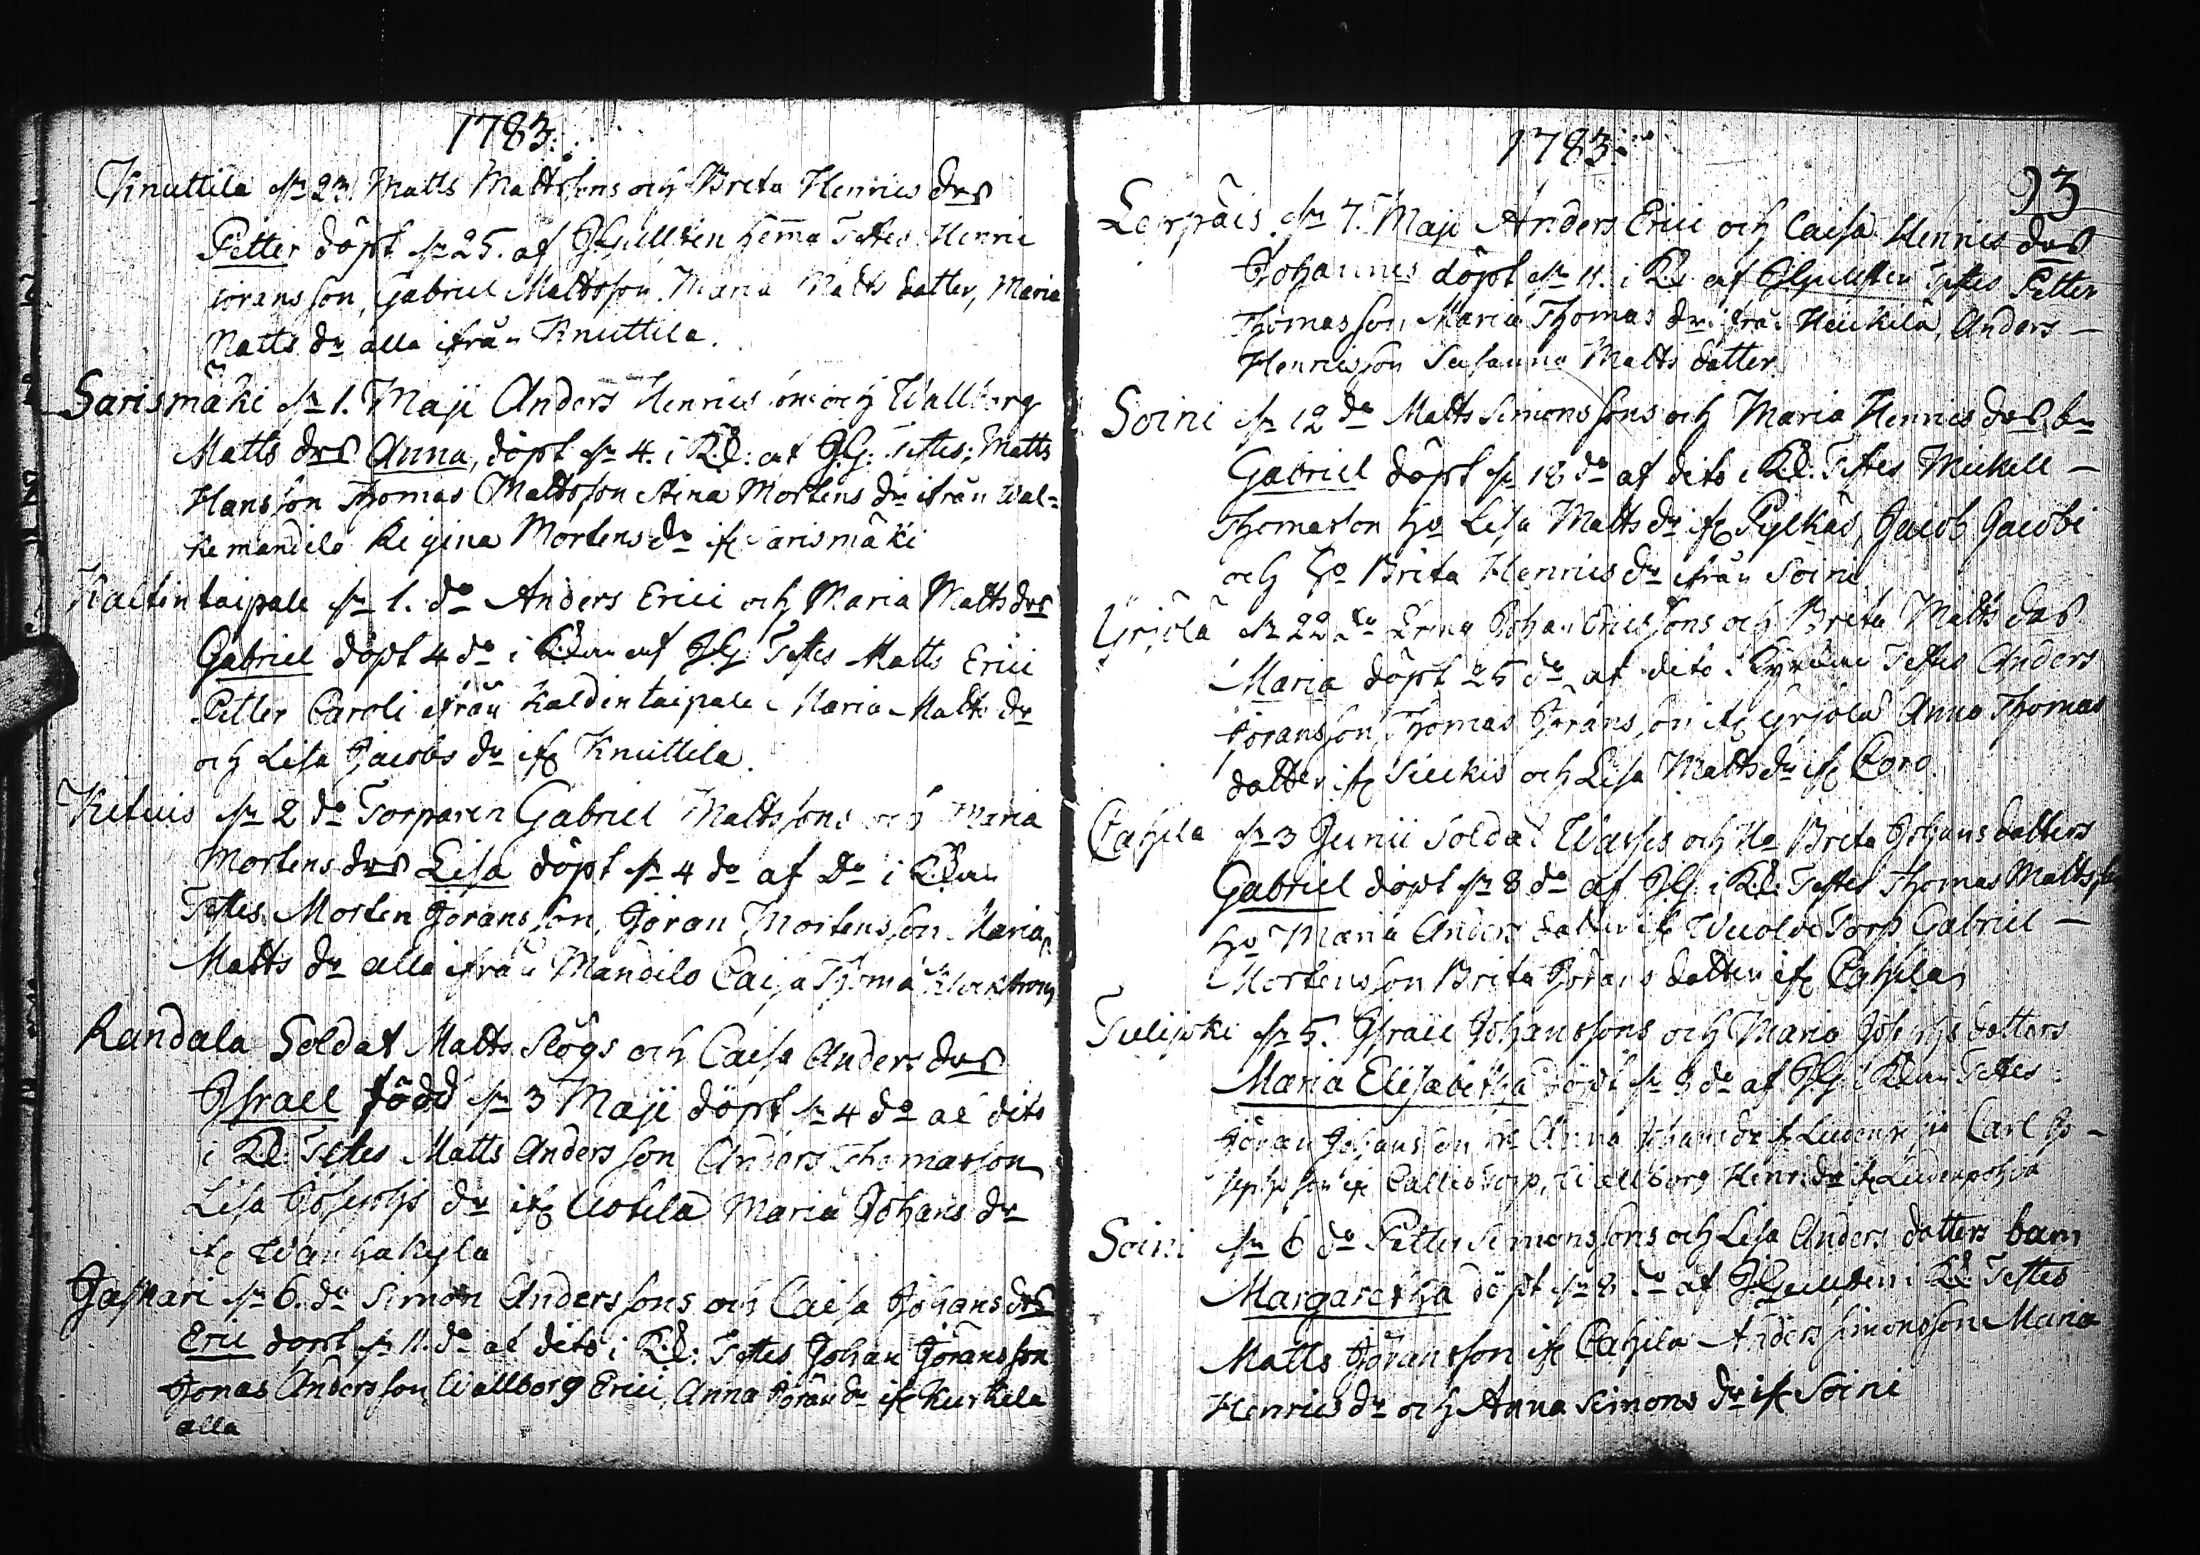 1783.
Knuttila d. 23. Matts Mattssons och Breta Henrics drs
Petter döpt d. 25. af JGyllsten hema Testes Henric
Göransson, Gabriel Mattsson, Maria Matts datter, Maria
Matts dr alla ifrån Knuttila.
Sarismäki d. 1. Maji Anders Henricsons och Wallborg
Matts drs Anna, döpt d. 4. i Kk: af J.G: Testes; Matts
Hansson Thomas Mattsson Stina Mortens dr ifrån Wal=
kemandilo Regina Mortens dr ifr Sarismäki
Kaltintaipale d. 1. do Anders Erici och Maria Matts drs
Gabriel döpt 4 do i af JG Testes Matts Erici
Petter Caroli ifrån Kaldintaipale Maria Matts dr
och Lisa Jacobs dr ifr Knuttila.
d. 2 do Torparen Gabriel Mattssons och Maria
Mortens drs Lisa döpt d. 4 do af Do i
Testes Morten Göransson, Göran Mortensson Maria
Matts dr alla ifrån Mandilo Caisa Thoma
Randala Soldat Matts Slögs och Caisa Anders drs
Israel född d. 3 Maji döpt d. 4 do af dito
i Kk: Testes Matts Andersson Anders Thomasson
Lisa Josephs dr ifr Uotila Maria Johans dr
ifr Wanhakyla
Jaskari d. 6. do Simon Anderssons och Caisa Johans drs
Eric döpt d. 11. do af dito i Kk: Testes Johan Göransson
Jonas Andersson, Wallborg Erici, Anna Göran dr ifr Kurkela
alla
1783.
93
d. 7. Maji Anders Erici och Caisa Henrics drs
Johannes döpt d. 11. i Kk af JGyllsten Testes Petter
Thomasson, Maria Thomas dr från Heickilä, Anders –
Henricsson Susanna Matts datter
Soini d. 12 do Matts Simonssons och Maria Henrics drs bn
Gabriel döpt d. 18 do af dito i Kk: Testes Mickell –
Thomasson ho Lisa Matts dr ifr Pylkäs, Jacob Jacobi
och ho Brita Henrics dr ifrån Soini
Yrjölä d. 22 do Johan Ericssons och Breta Matts drs
Maria döpt 25 do af dito i Testes Anders
Göransson, Thomas Göransson ifr Yrjölä Anna Thomas
datter ifr och Lisa Matts dr ifr
d. 3 Junii Soldat och Ho Breta Johans datters
Gabriel döpt d. 8 do af JG i Kk: Testes Thomas Mattsson
ho Maria Anders datter ifr Torp Gabriel –
Mortensson Brita Görans datter ifr
Tulijoki d. 5. Israel Johanssons och Maria Josephs datters
Maria Elisabetha döpt d. 8 do af JG i Testes
Göran Johansson Anna Johans dr ifr Carl Jo –
sephsson ifr torp, Wallborg Henric dr ifr
Soini d. 6 do Petter Simonssons och Lisa Anders datters barn
Margaretha döpt d. 8 do af JGyllsten i Kk: Testes
Matts Göransson ifr Anders Simonsson Maria
Henrics dr och Anna Simons dr ifr Soini